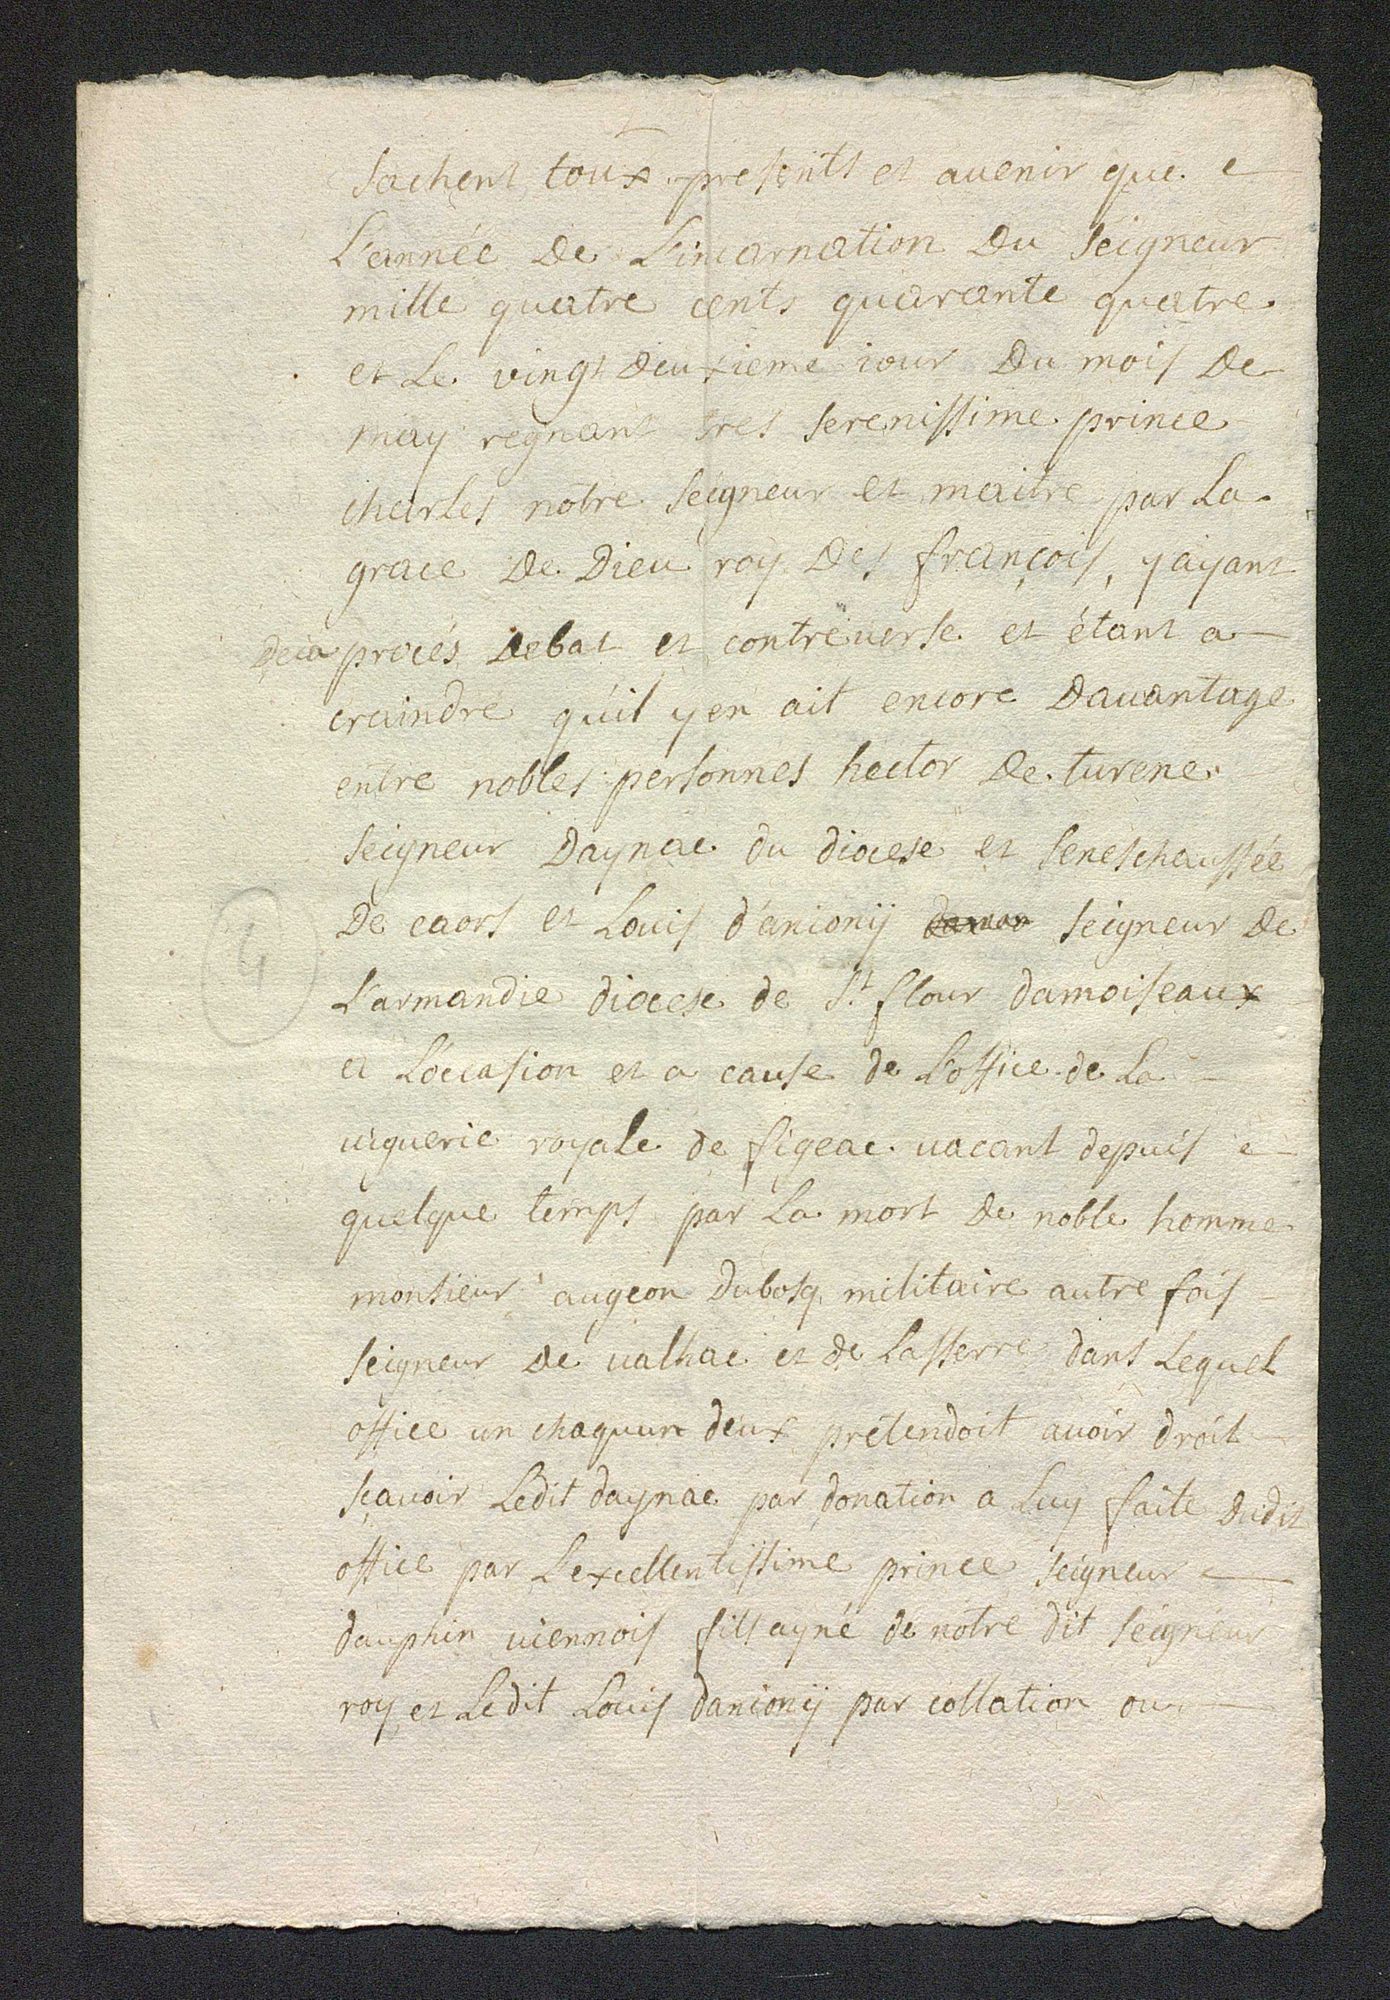 Sachent toux presents et auenir que
L'année De L'incarnation Du Seigneur
mille quatre cents quarante quatre
et Le vingt Deuxieme iour Du mois De
may regnant tres serenissime prince
charles notre seigneur et maitre par La
grace De Dieu roy Des françois, y ayant
Deia procés Debat et contreuerse et étant a
craindre qu'il y en ait encore Dauantage
entre nobles personnes hector De turene
seigneur Daynac du diocese et seneschaussée
De caors et Louis d'anionij seigneur De
L'armandie diocese de St flour damoiseaux
a L'occasion et a cause de L'office de La
uiguerie royale de figeac uacant depuis
quelque temps par La mort De noble homme
monsieur augeon Dubosq militaire autre fois
seigneur De ualhac et de Lasserre dans Lequel
office un chaqun deux prétendoit auoir droit
sçauoir Ledit daynac par donation a Luy faite Dudit
office par L'excellentissime prince seigneur
dauphin uiennois fils ayné de notre dit seigneur
roy et Ledit Louis danionij par collation ou
4